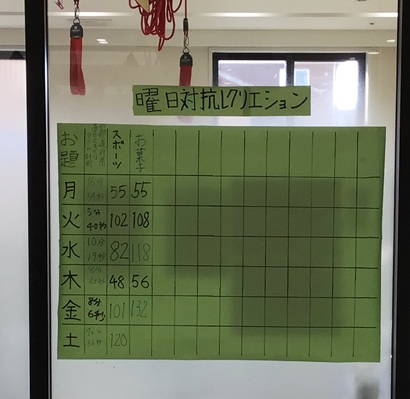 曜日対抗レクリエション
お題 スポーツ お菓子
月 55 55
火 5分40秒 102 108
水 10分19秒 82 118
木 48 56
金 8分6秒 101 132
土 120